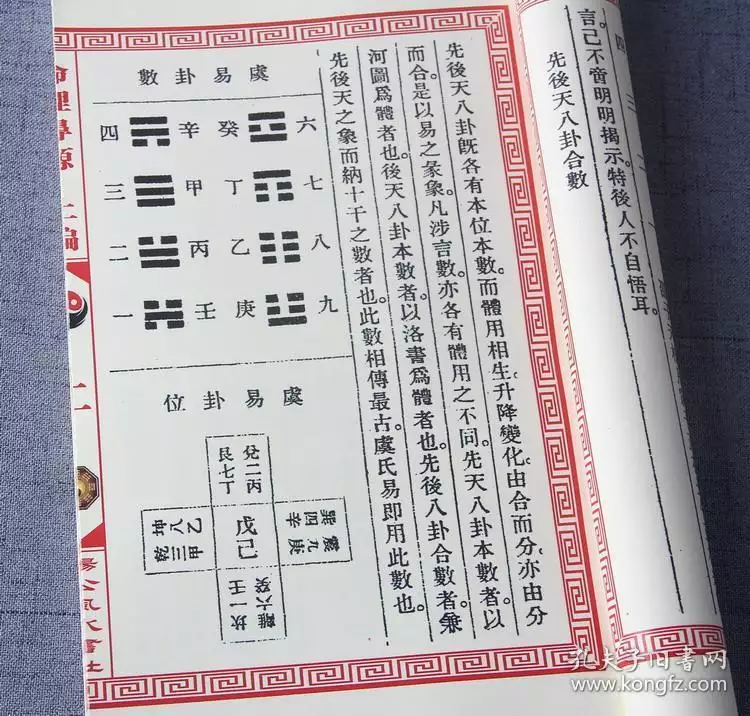 言。己不啻明明揭示。特後人不自悟耳。
先後天八卦合數
先後天八卦旣各有本位本數。而體用相生。升降變化。由合而分。亦由分
而合。是以易之彖象。凡涉言數。亦各有體用之不同。先天八卦本數者。以
河圖爲體者也。後天八卦本數者。以洛書爲體者也。先後八卦合數者。兼
先後天之象而納十干之數者也。此數相傳最古。虞氏易即用此數也。
虞易卦數
六 癸 辛 四
七 丁 甲 三
八 乙 丙 二
九 庚 壬 一
虞易卦位
兌二丙
艮七丁
乙八坤
甲三乾
戊己
巽四辛
震九庚
離六癸
坎一壬
二
孔夫子旧书网
www.kongfz.com